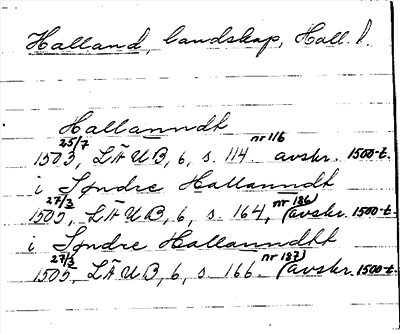 Halland, landskap, Hall. l.
Hallanndt
1503 25/7, LÄUB, 6, s. 114. nr 116 avskr. 1500-t.
i Søndre Hallanndt
1505 27/3, LÄUB, 6, s. 164, nr 186) (avskr. 1500-t.
i Søndre Hallanndtt
1505 27/3, LÄUB, 6, s. 166. nr 187) (avskr. 1500-t.